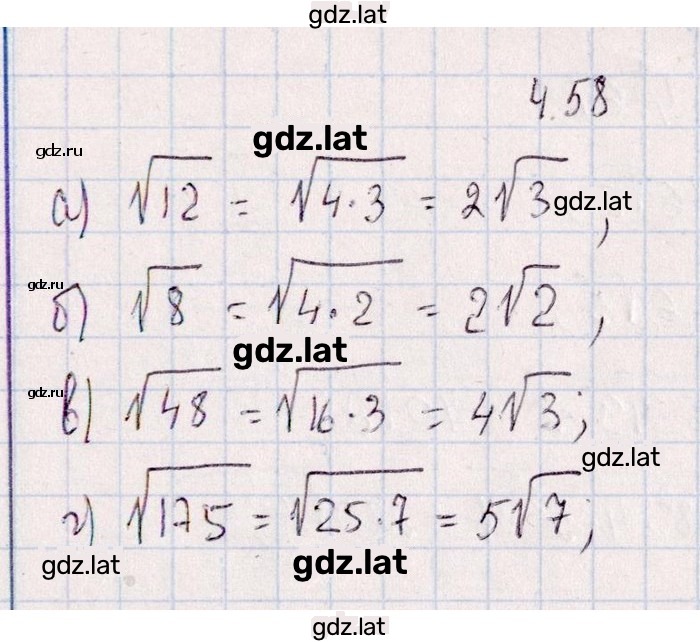 gdz.lat
4.58
gdz.lat
gdz.ru
а) √12 = √4·3 = 2√3 gdz.lat ,
gdz.ru
б) √8 = √4·2 = 2√2 ,
gdz.lat
gdz.ru
в) √48 = √16·3 = 4√3;
gdz.lat
г) √175 = √25·7 = 5√7;
gdz.lat
gdz.lat
gdz.lat